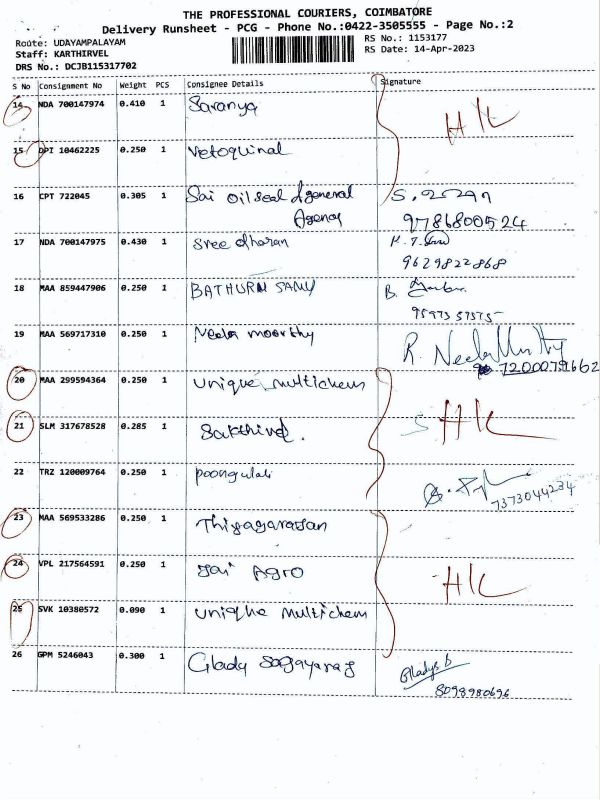 THE PROFESSIONAL COURIERS, COIMBATORE
Delivery Runsheet - PCG - Phone No.:0422-3505555 - Page No.:2
Route: UDAYAMPALAYAM
RS No.: 1153177
Staff: KARTHIRVEL
RS Date: 14-Apr-2023
DRS No.: DCJB115317702
S No Consignment No Weight PCS Consignee Details Signature
14 NDA 700147974 0.410 1 Saranya
HK
15 DPI 10462225 0.250 1 Vetoquinal
16 CPT 722045 0.305 1 Sai oil seal & general
Agency
9786800524
17 NDA 700147975 0.430 1 Sree dharan
9629822868
18 MAA 859447906 0.250 1 BATHURU SAMY B.
9597357575
19 MAA 569717310 0.250 1 Neela moorthy R. Neela Murthy
7200079662
20 MAA 299594364 0.250 1 Unique multichem
21 SLM 317678528 0.285 1 Sakthivel. S HK
22 TRZ 120009764 0.250 1 poongulali
7373044234
23 MAA 569533286 0.250 1 Thiyagarasan
24 VPL 217564591 0.250 1 Jai AGRO HK
25 SVK 10380572 0.090 1 Unique multichem
26 GPM 5246043 0.300 1 Glady Sagayaraj Gladys b
8098980696